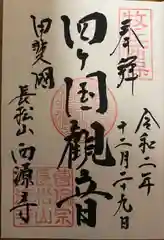 奉拝
令和二年
十二月二十九日
四ヶ国観音
甲斐国
長松山西源寺